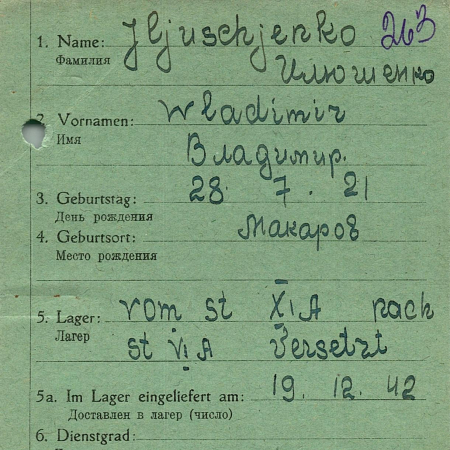 1. Name: Jljuschjenko 263
Фамилия Илюшенко
2. Vornamen: Wladimir
Имя Владимир.
3. Geburtstag: 28. 7. 21
День рождения
4. Geburtsort: Макаров
Место рождения
5. Lager: vom st XIA nach
Лагер st VIA versetzt
5a. Im Lager eingeliefert am: 19. 12. 42
Доставлен в лагер (число)
6. Dienstgrad: